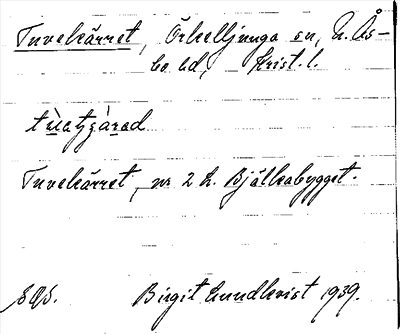 Tuvekärret, Örkelljunga sn, N. Ås-
bo hd, Krist. l.
Tuvekärret, nr 2 h. Bjälkabygget.
Birgit Lundkvist 1939.